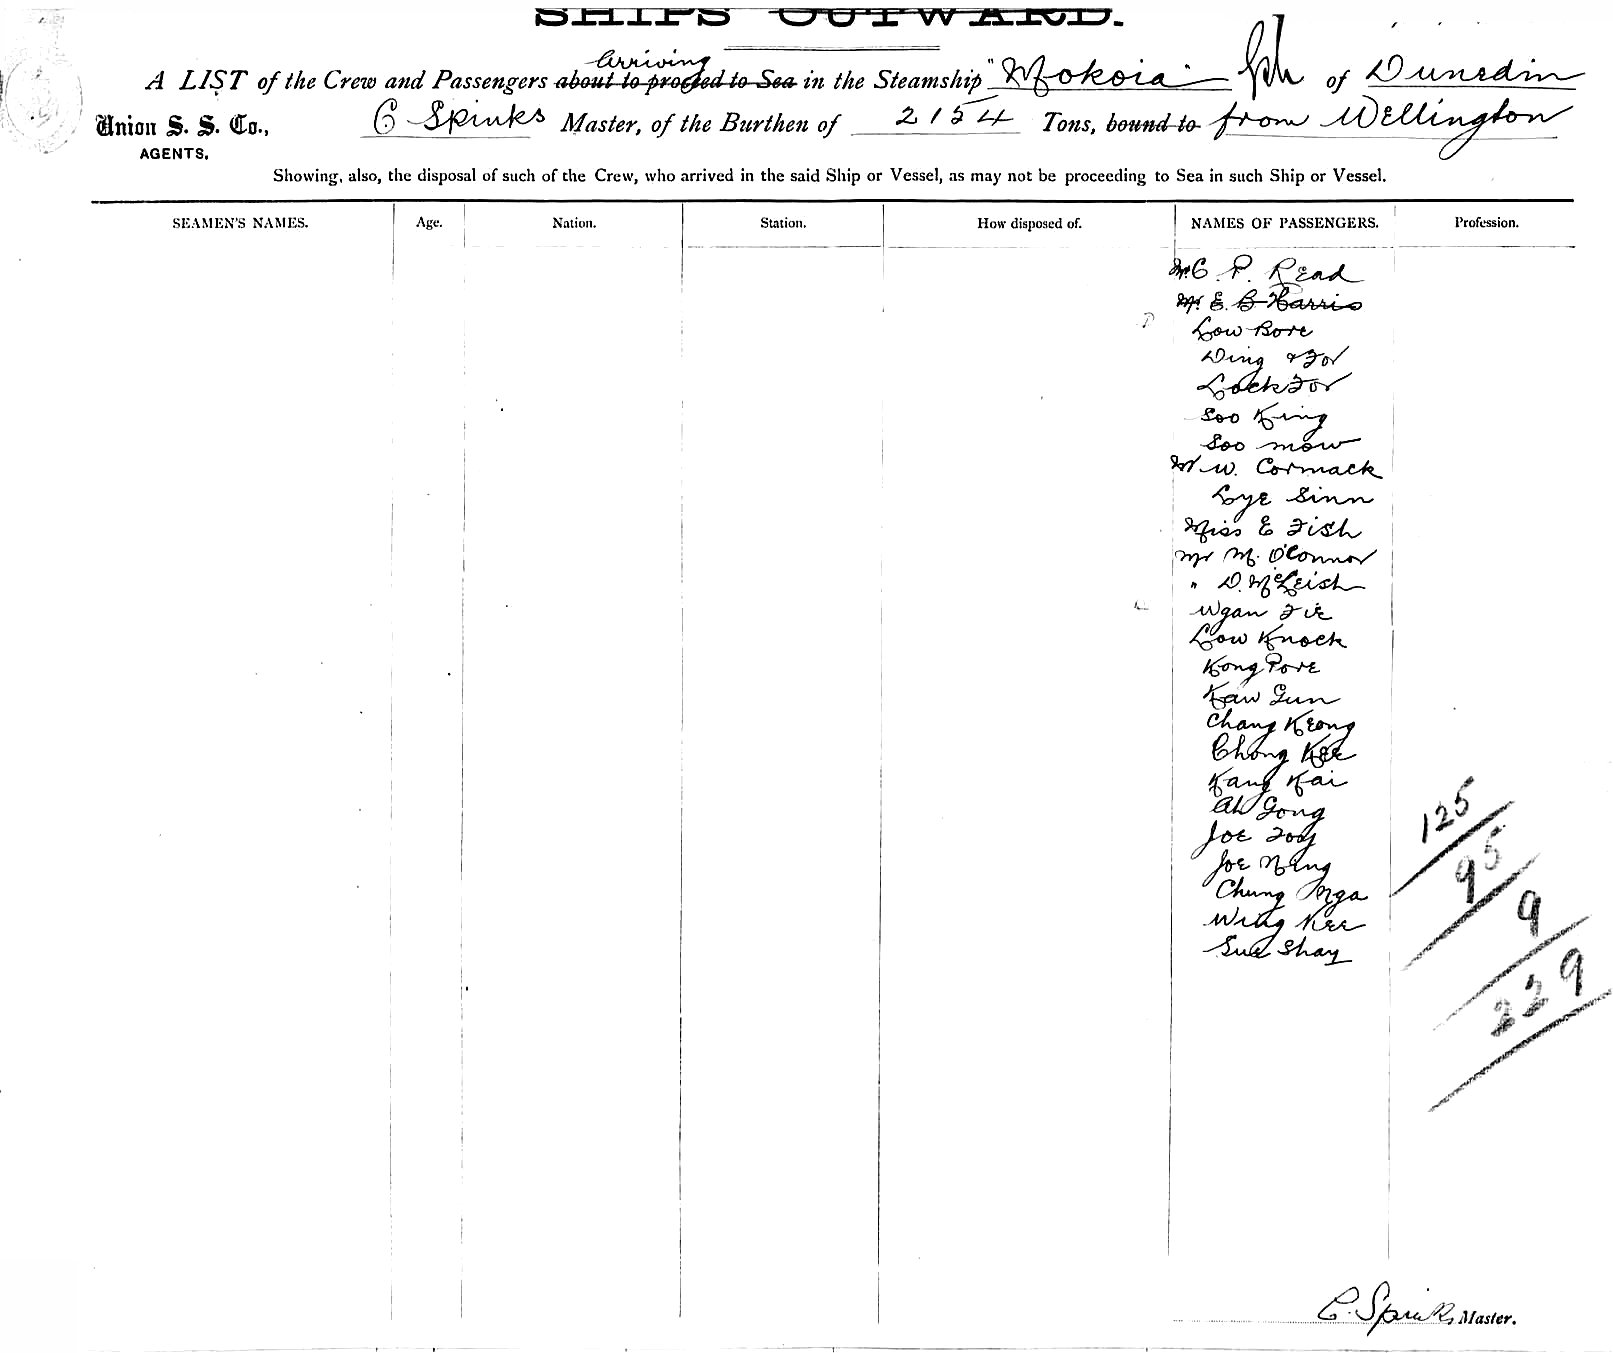 SHIPS OUTWARD.
Arriving
A LIST of the Crew and Passengers about to proceed to Sea in the Steamship "Mokoia" of Dunedin
Union S. S. Co.,
AGENTS.
C Spinks Master, of the Burthen of 2154 Tons, bound to from Wellington
Showing, also, the disposal of such of the Crew, who arrived in the said Ship or Vessel, as may not be proceeding to Sea in such Ship or Vessel.
SEAMEN'S NAMES. Age. Nation. Station. How disposed of. NAMES OF PASSENGERS. Profession.
Mr C. P. Read
Mr. E. B Harris
Low Bore
Ding & For
Lock For
Soo King
Soo mow
Mr W. Cormack
Lye Sinn
Miss E Fish
Mr M. O'Connor
" D. McLeish
Wgan Fie
Low Knock
Kong Pore
Kaw Gun
Chang Keong
Chong Kee
Kang Kai
Ah Gong
Joe Fooy
Joe Ning
Chung Nga
Wing Kee
Sue Shay
125
95
9
229
C. Spinks Master.